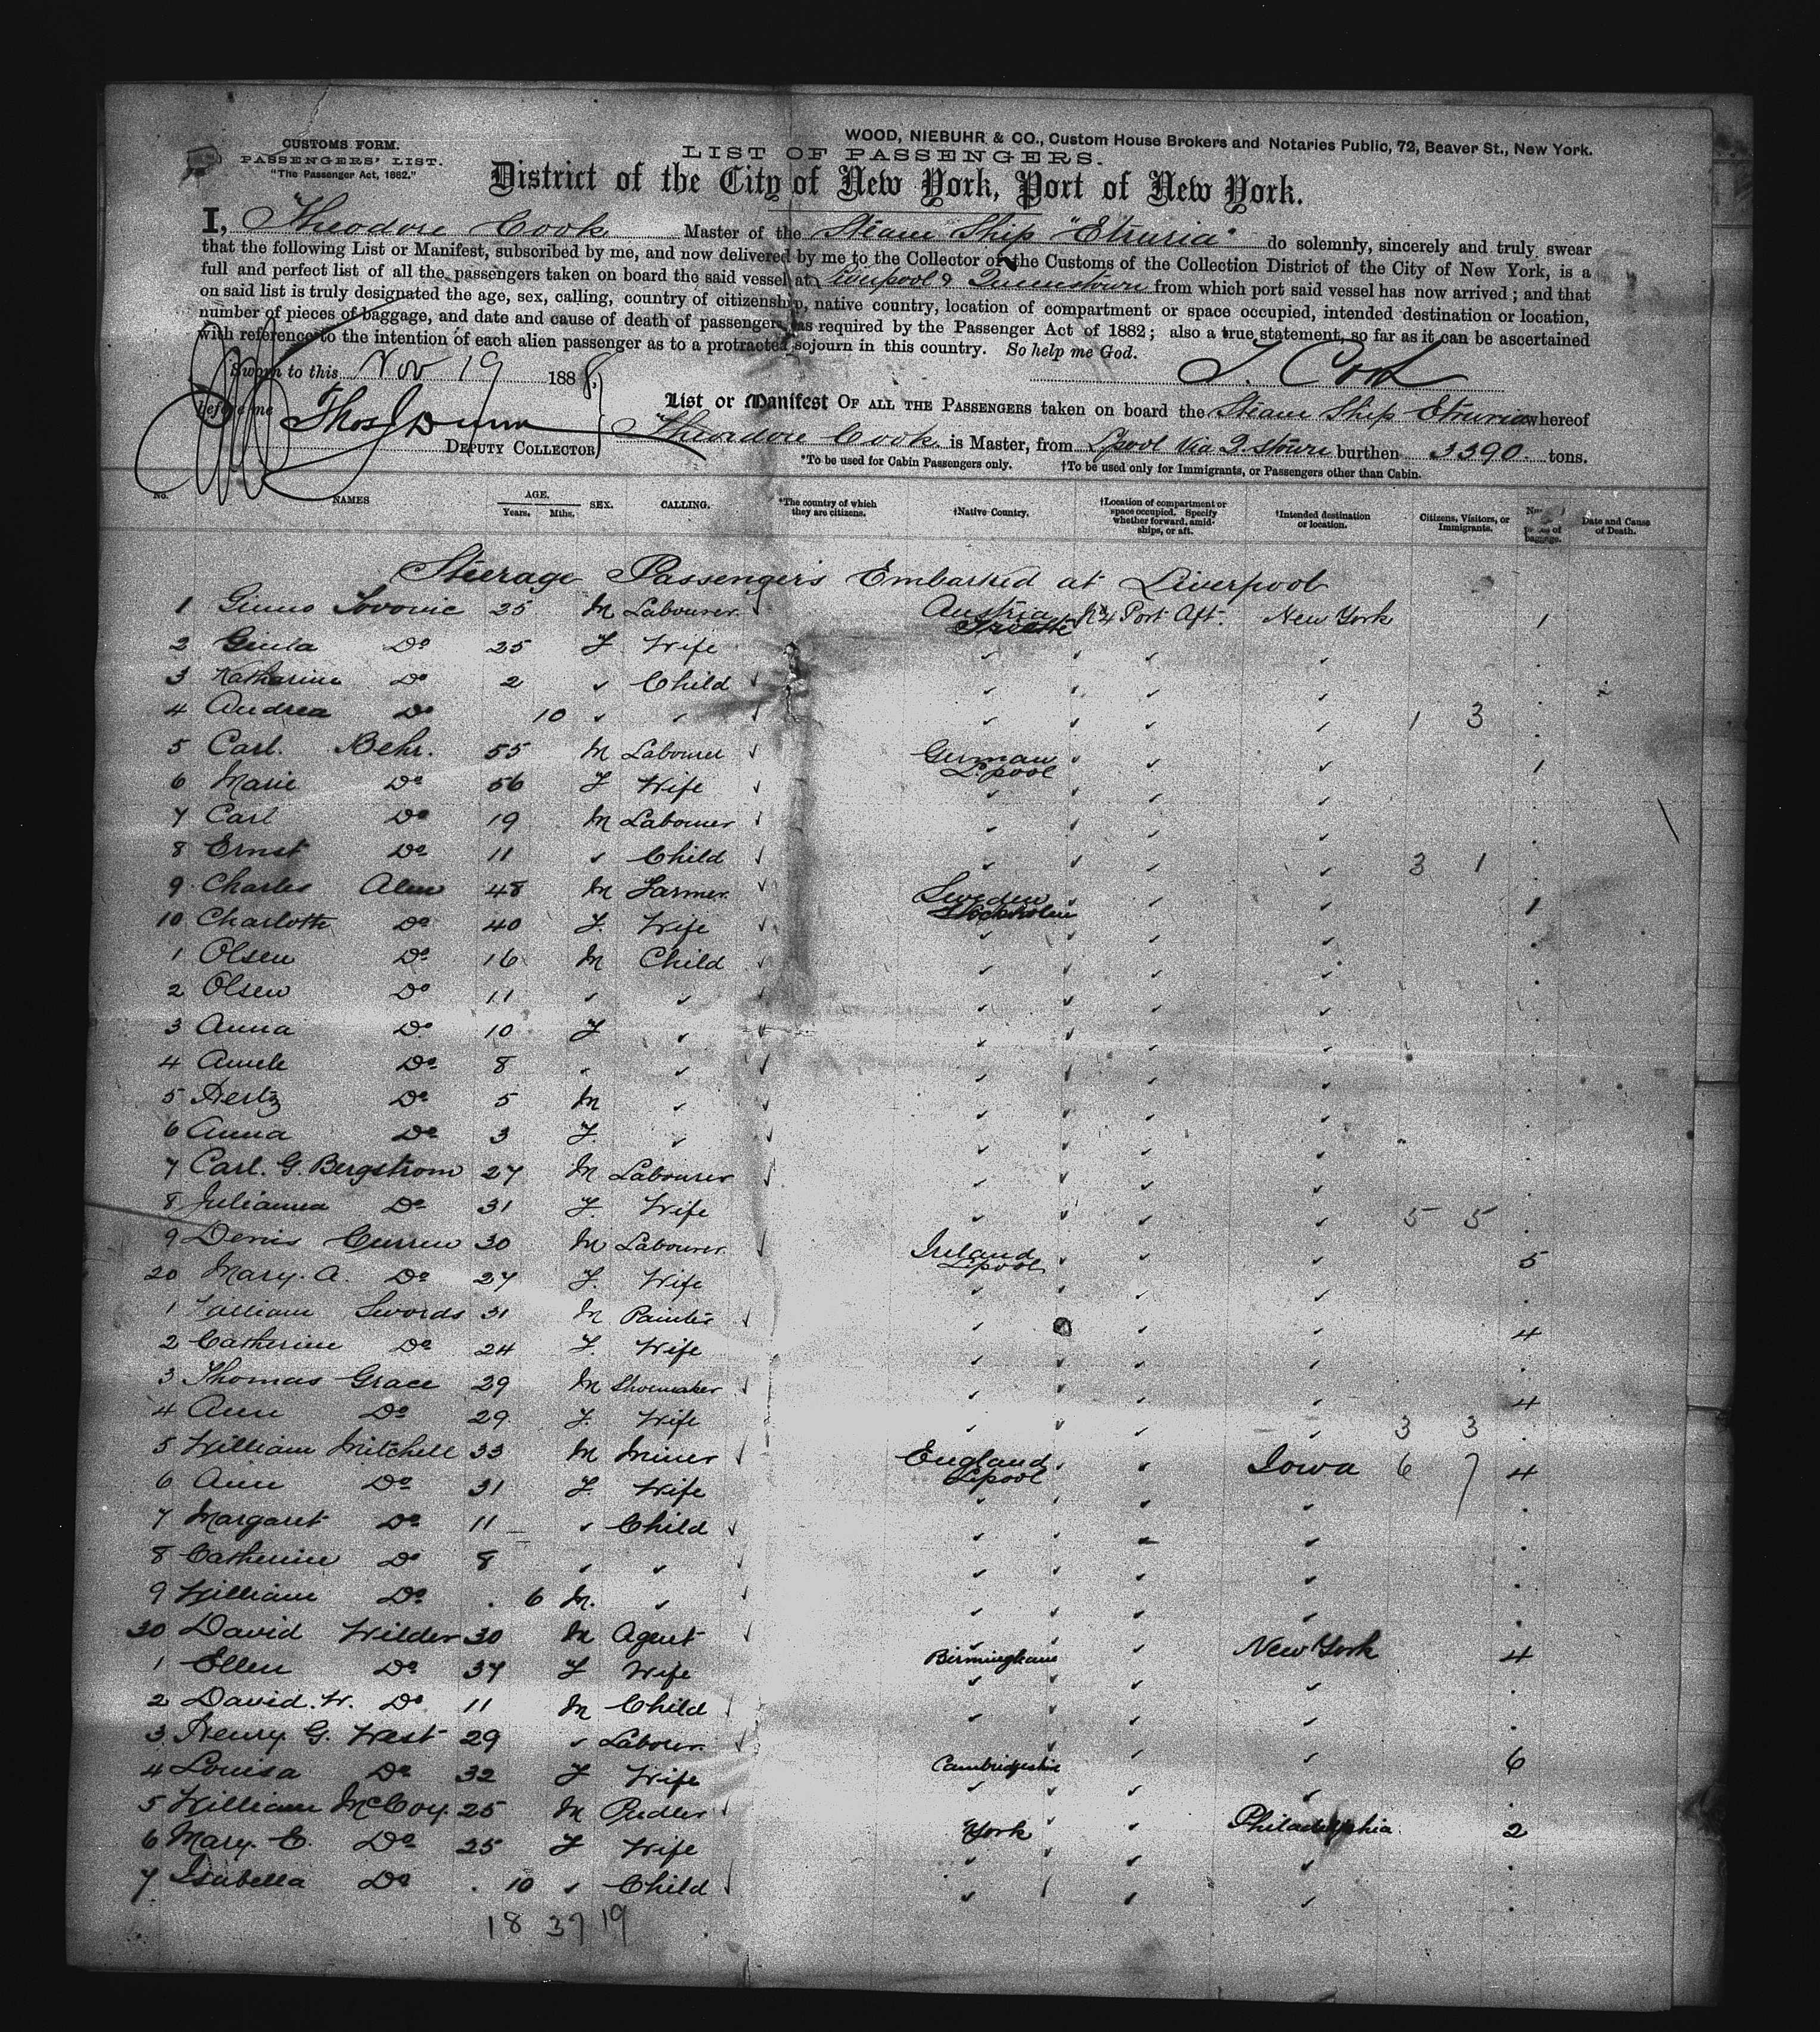 WOOD, NIEBUHR & CO., Custom House Brokers and Notaries Public, 72, Beaver St., New York.
CUSTOMS FORM.
PASSENGERS' LIST.
"The Passenger Act, 1882."
LIST OF PASSENGERS.
District of the City of New York, Port of New York.
I, Theodore Cook Master of the Steam Ship "Etruria" do solemnly, sincerely and truly swear
that the following List or Manifest, subscribed by me, and now delivered by me to the Collector of the Customs of the Collection District of the City of New York, is a
full and perfect list of all the passengers taken on board the said vessel at Liverpool & Queenstown from which port said vessel has now arrived; and that
on said list is truly designated the age, sex, calling, country of citizenship, native country, location of compartment or space occupied, intended destination or location,
number of pieces of baggage, and date and cause of death of passengers, as required by the Passenger Act of 1882; also a true statement, so far as it can be ascertained
with reference to the intention of each alien passenger as to a protracted sojourn in this country. So help me God.
Sworn to this Nov 19 1888, T. Cook
before me Thos J Dunn
DEPUTY COLLECTOR
List or Manifest OF ALL THE PASSENGERS taken on board the Steam Ship Etruria whereof
Theodore Cook is Master, from Lpool Via Q.stown burthen 3390 tons.
*To be used for Cabin Passengers only. †To be used only for Immigrants, or Passengers other than Cabin.
No. NAMES AGE. Years. Mths. SEX. CALLING. *The country of which they are citizens. †Native Country. †Location of compartment or space occupied. Specify whether forward, amid-ships, or aft. †Intended destination or location. Citizens, Visitors, or Immigrants. of baggage. Date and Cause of Death.
Steerage Passengers Embarked at Liverpool
1 Lovovic 25 M Labourer Austria Trieste Port Aft. New York 1
2 Giula Do 25 F Wife
3 Katharine Do 2 Child
4 Andrea Do 10 1 3
5 Carl. Behr. 55 M Labourer German L.pool 1
6 Marie Do 56 F Wife
7 Carl Do 19 M Labourer
8 Ernst Do 11 Child 3 1
9 Charles Alm 48 M Farmer Sweden Stockholm 1
10 Charlotte Do 40 F. Wife
1 Olsen Do 16 M Child
2 Olsen Do 11
3 Anna Do 10 F
4 Do 8
5 Hertz Do 5 M
6 Anna Do 3 F.
7 Carl. G. Bergstrom 27 M Labourer
8 Julianna Do 31 F. Wife 5 5
9 Denis Curren 30 M Labourer Ireland Lpool 5
20 Mary. A. Do 27 F. Wife
1 William Swords 31 M Painter 4
2 Catherine Do 24 F. Wife
3 Thomas Grace 29 M Shoemaker 4
4 Ann Do 29 F. Wife 3 3
5 William Mitchell 33 M Miner England Lpool Iowa 6 7 4
6 Ann Do 31 F. Wife
7 Margaret Do 11 Child
8 Catherine Do 8
9 William Do 6 M.
30 David Wilder 30 M Agent Birmingham New York 4
1 Ellen Do 37 F Wife
2 David. W. Do 11 M Child
3 Henry. G. West 29 Labourer Cambridgeshire 6
4 Louisa Do 32 F Wife
5 William McCoy. 25 M Pudler York Philadelphia 2
6 Mary. E. Do 25 F Wife
7 Isabella Do 10 Child
18 37 19